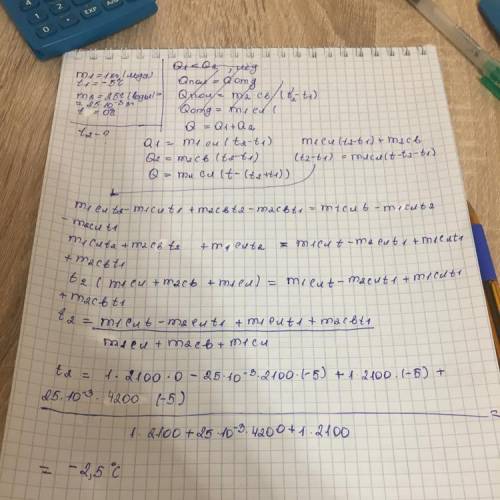 m1 = 1кг (льда)
t1 = -5°C
m2 = 25г (воды) =
= 25·10⁻³кг
t = 0°C
t2 - ?
Qпол = Qотд
Qпол = m2cв (t2-t1)
Qотд = m1cл (
Q = Q1+Q2
Q1 = m1cл (t2-t1) m1cл (t2-t1) + m2cв
Q2 = m2cв (t2-t1) (t2-t1) = m1cл (t-t2-t1)
Q = m1cл (t-(t2+t1))
m1cлt2 - m1cлt1 + m2cвt2 - m2cвt1 = m1cлt - m1cлt2
- m2cлt1
m1cлt2 + m2cвt2 + m1cлt2 = m1cлt - m2cлt1 + m1cлt1
+ m2cвt1
t2 (m1cл + m2cв + m1cл) = m1cлt - m2cлt1 + m1cлt1
+ m2cвt1
t2 = m1cлt - m2cлt1 + m1cлt1 + m2cвt1
m1cл + m2cв + m1cл
t2 = 1·2100·0 - 25·10⁻³·2100·(-5) + 1·2100·(-5) +
25·10⁻³·4200 (-5) =
1·2100 + 25·10⁻³·4200 + 1·2100
= -2,5°C